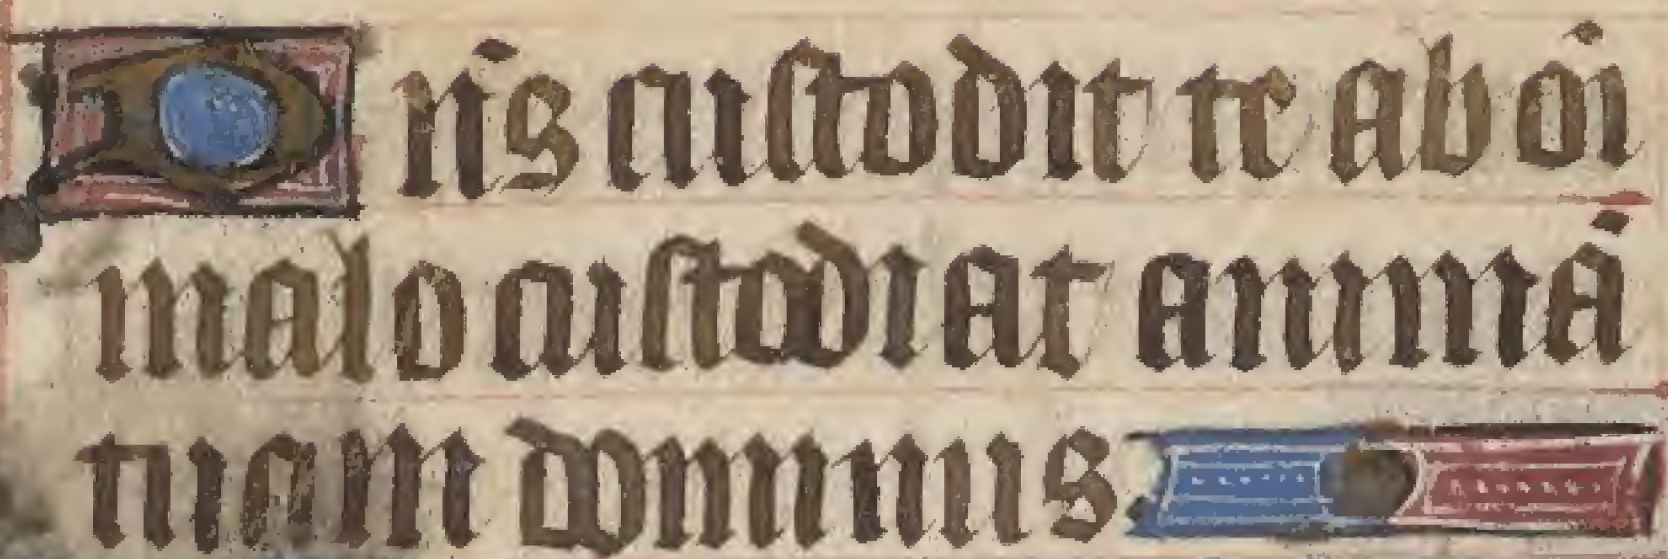 Dñs custodit te ab oı̄
malo custodiat animā
tuam dominus